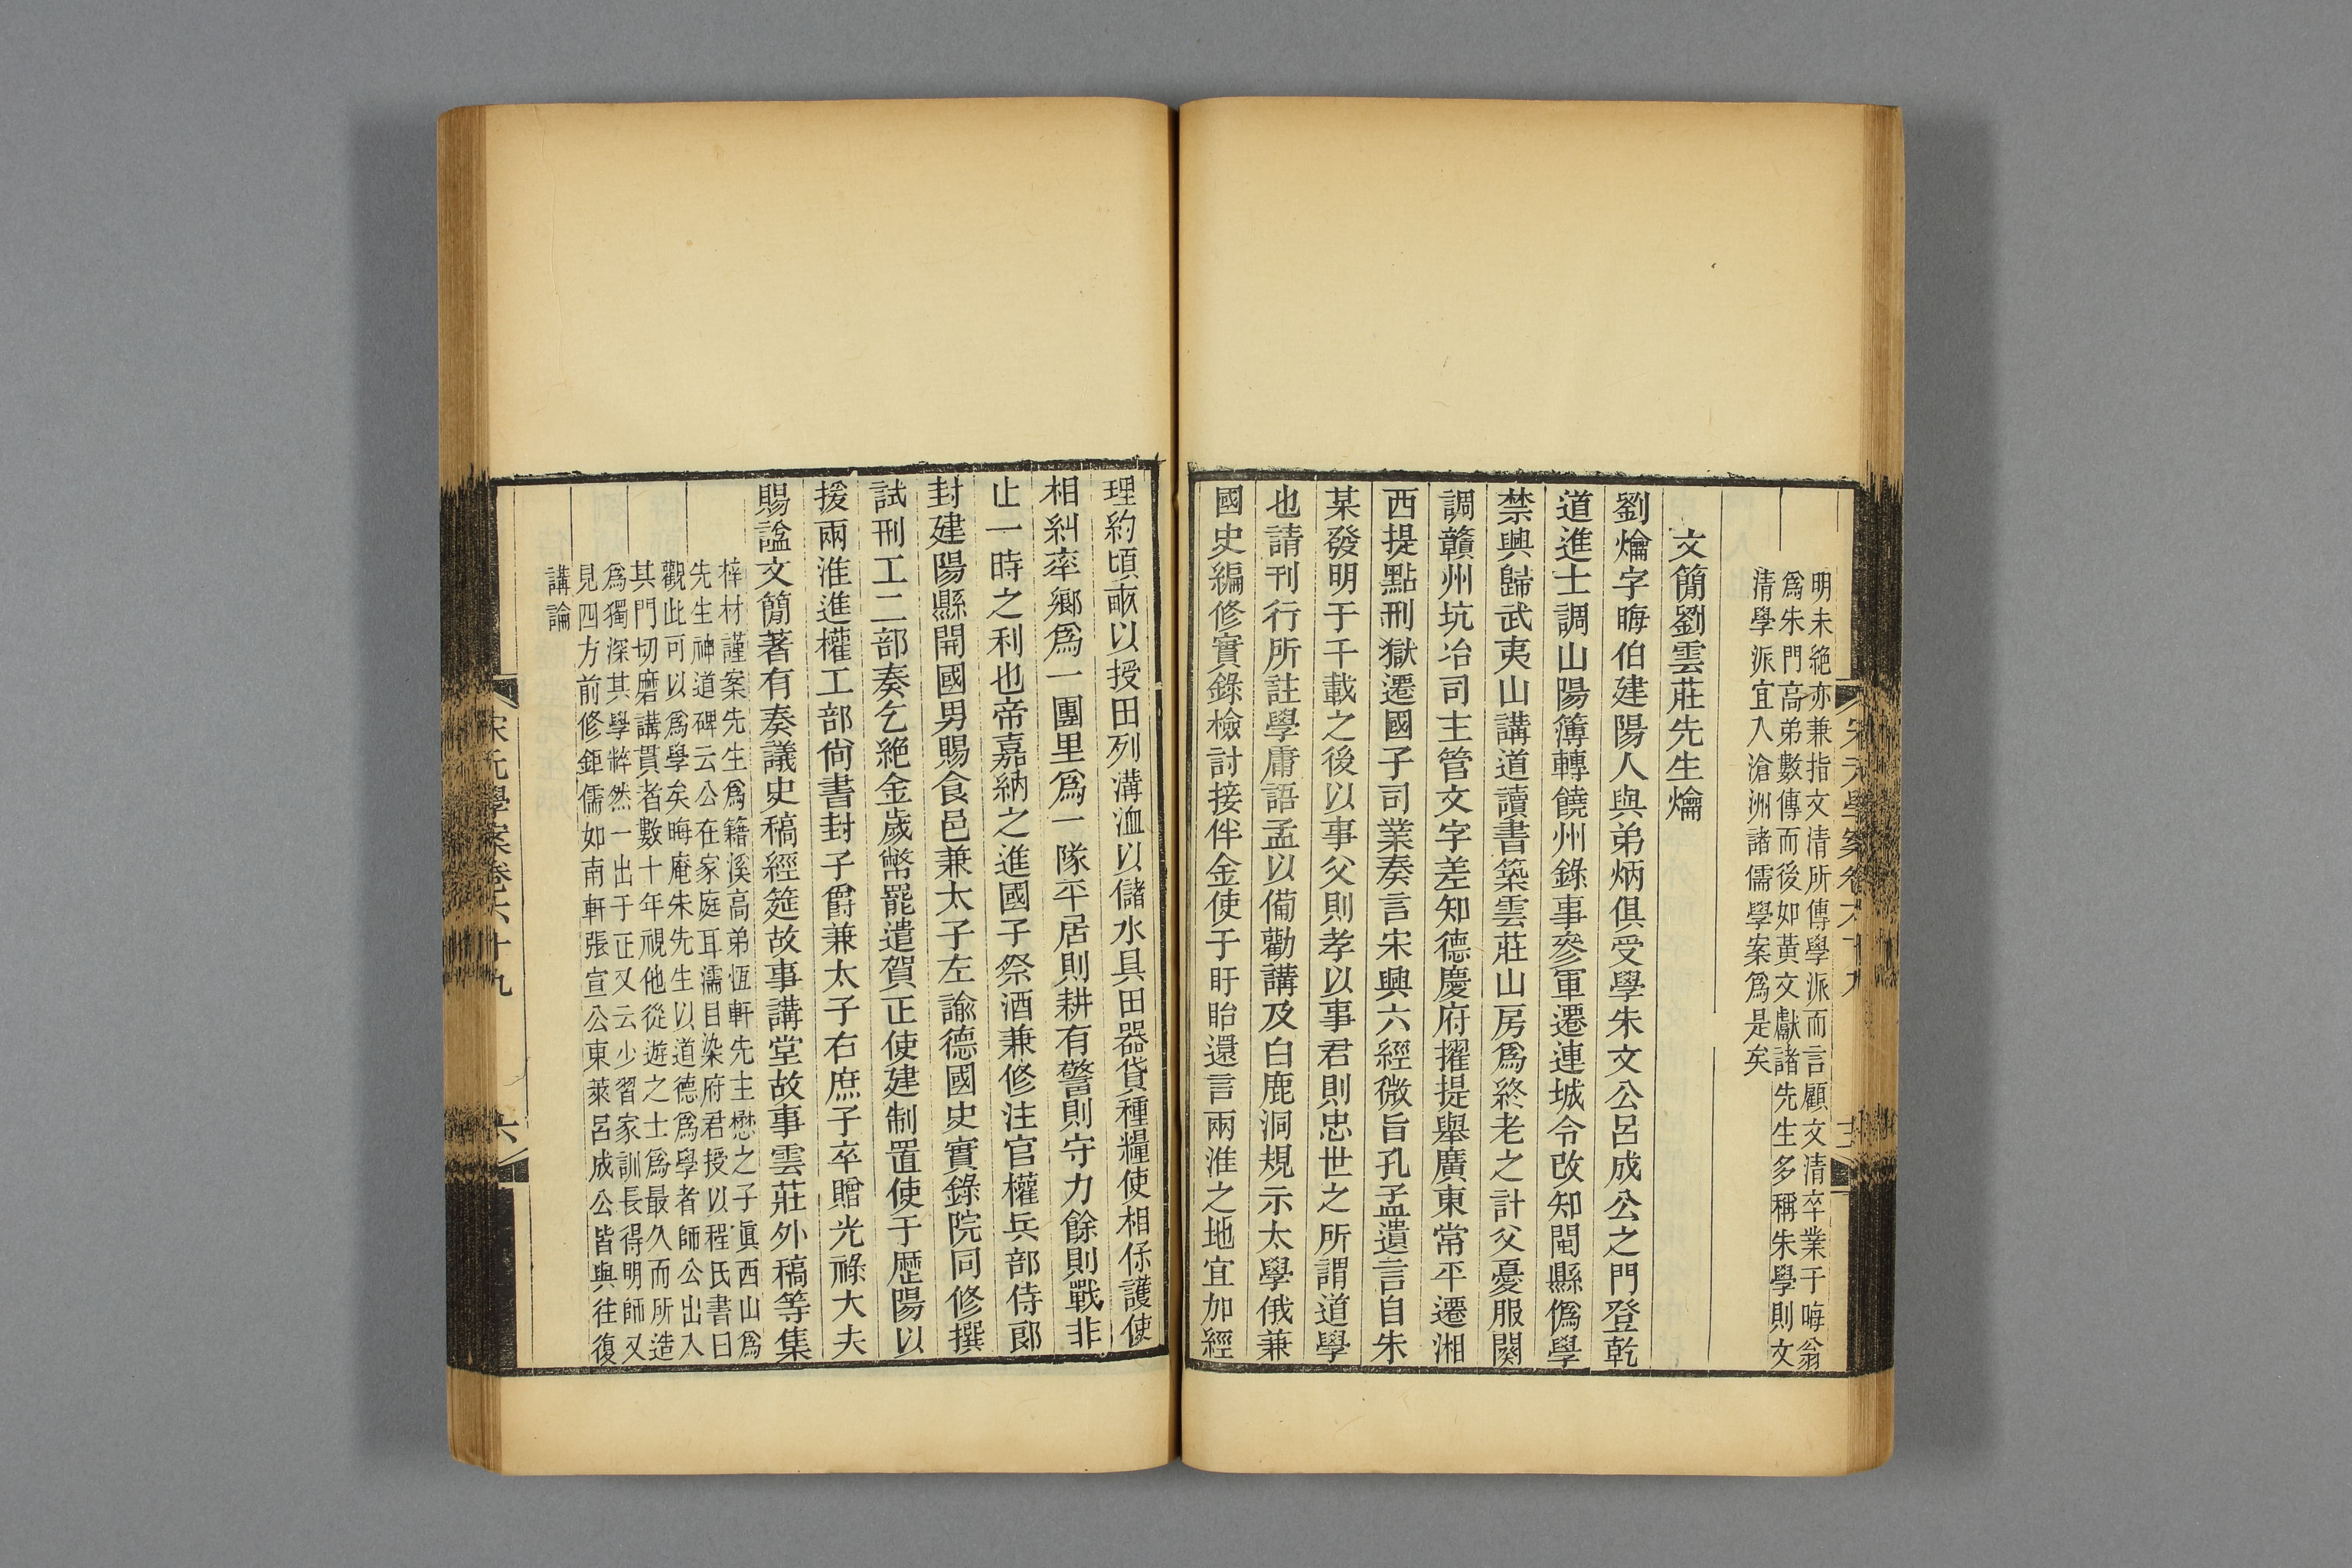 明未絕亦兼指文清所傳學派而言顧文清卒業于晦翁
爲朱門高弟數傳而後如黃文獻諸先生多稱朱學則文
清學派宜入滄洲諸儒學案爲是矣
文簡劉雲莊先生爚
劉爚字晦伯建陽人與弟炳俱受學朱文公呂成公之門登乾
道進士調山陽簿轉饒州錄事參軍遷連城令改知閩縣僞學
禁興歸武夷山講道讀書築雲莊山房爲終老之計父憂服闋
調贛州坑冶司主管文字差知德慶府擢提舉廣東常平遷湘
西提點刑獄遷國子司業奏言宋興六經微旨孔孟遺言自朱
某發明于千載之後以事父則孝以事君則忠世之所謂道學
也請刊行所註學庸語孟以備勸講及白鹿洞規示太學俄兼
國史編修實錄檢討接伴金使于盱眙還言兩淮之地宜加經
理約頃畝以授田列溝洫以儲水具田器貸種糧使相保護使
相糾率鄉爲一團里爲一隊平居則耕有警則守力餘則戰非
止一時之利也帝嘉納之進國子祭酒兼修注官權兵部侍郎
封建陽縣開國男賜食邑兼太子左諭德國史實錄院同修撰
試刑工二部奏乞絕金歲幣罷遣賀正使建制置使于歷陽以
援兩淮進權工部尚書封子爵兼太子右庶子卒贈光祿大夫
賜諡文簡著有奏議史稿經筵故事講堂故事雲莊外稿等集
梓材謹案先生爲籍溪高弟恆軒先生懋之子眞西山爲
先生神道碑云公在家庭耳濡目染府君授以程氏書曰
觀此可以爲學矣晦庵朱先生以道德爲學者師公出入
其門切磨講貫者數十年視他從遊之士爲最久而所造
爲獨深其學粹然一出于正又云少習家訓長得明師又
見四方前修鉅儒如南軒張宣公東萊呂成公皆與往復
講論
宋元學案卷六十九
六